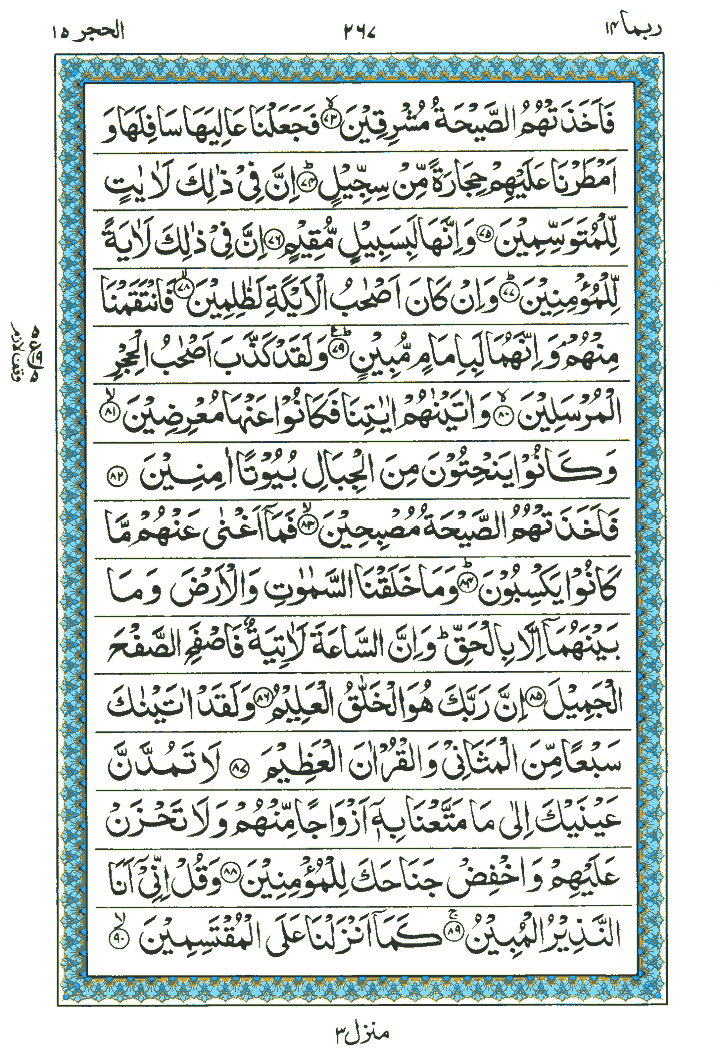 ربما ١٤
٢٦٧
الحجر ١٥
فَاَخَذَتْهُمُ الصَّيْحَةُ مُشْرِقِيْنَ ﴿٧٣﴾ۙ فَجَعَلْنَا عَالِيَهَا سَافِلَهَا وَ
اَمْطَرْنَا عَلَيْهِمْ حِجَارَةً مِّنْ سِجِّيْلٍ ﴿٧٤﴾ؕ اِنَّ فِيْ ذٰلِكَ لَاٰيٰتٍ
لِّلْمُتَوَسِّمِيْنَ ﴿٧٥﴾ وَاِنَّهَا لَبِسَبِيْلٍ مُّقِيْمٍ ﴿٧٦﴾ اِنَّ فِيْ ذٰلِكَ لَاٰيَةً
لِّلْمُؤْمِنِيْنَ ﴿٧٧﴾ؕ وَاِنْ كَانَ اَصْحٰبُ الْاَيْكَةِ لَظٰلِمِيْنَ ﴿٧٨﴾ۙ فَانْتَقَمْنَا
مِنْهُمْ وَاِنَّهُمَا لَبِاِمَامٍ مُّبِيْنٍ ﴿٧٩﴾ؕ وَلَقَدْ كَذَّبَ اَصْحٰبُ الْحِجْرِ
الْمُرْسَلِيْنَ ﴿٨٠﴾ۙ وَاٰتَيْنٰهُمْ اٰيٰتِنَا فَكَانُوْا عَنْهَا مُعْرِضِيْنَ ﴿٨١﴾ۙ
وَكَانُوْا يَنْحِتُوْنَ مِنَ الْجِبَالِ بُيُوْتًا اٰمِنِيْنَ ﴿٨٢﴾
فَاَخَذَتْهُمُ الصَّيْحَةُ مُصْبِحِيْنَ ﴿٨٣﴾ۙ فَمَاۤ اَغْنٰى عَنْهُمْ مَّا
كَانُوْا يَكْسِبُوْنَ ﴿٨٤﴾ؕ وَمَا خَلَقْنَا السَّمٰوٰتِ وَالْاَرْضَ وَمَا
بَيْنَهُمَاۤ اِلَّا بِالْحَقِّ ؕ وَاِنَّ السَّاعَةَ لَاٰتِيَةٌ فَاصْفَحِ الصَّفْحَ
الْجَمِيْلَ ﴿٨٥﴾ اِنَّ رَبَّكَ هُوَ الْخَلّٰقُ الْعَلِيْمُ ﴿٨٦﴾ وَلَقَدْ اٰتَيْنٰكَ
سَبْعًا مِّنَ الْمَثَانِيْ وَالْقُرْاٰنَ الْعَظِيْمَ ﴿٨٧﴾ لَا تَمُدَّنَّ
عَيْنَيْكَ اِلٰى مَا مَتَّعْنَا بِهٖۤ اَزْوَاجًا مِّنْهُمْ وَلَا تَحْزَنْ
عَلَيْهِمْ وَاخْفِضْ جَنَاحَكَ لِلْمُؤْمِنِيْنَ ﴿٨٨﴾ وَقُلْ اِنِّيْۤ اَنَا
النَّذِيْرُ الْمُبِيْنُ ﴿٨٩﴾ۚ كَمَاۤ اَنْزَلْنَا عَلَى الْمُقْتَسِمِيْنَ ﴿٩٠﴾ۙ
وقف لازم
منزل ٣